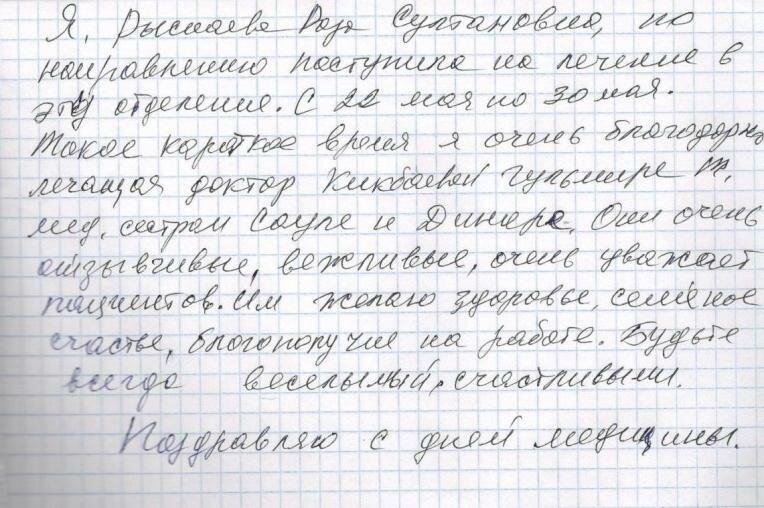 Я, Рыспаева Роза Султановна, по
направлению поступила на лечение в
эту отделение. С 22 мая по 30 мая.
Такое короткое время я очень благодарна
лечащая доктор Кикбаевой Гульмире Т.
мед. сестрам Сауле и Динаре. Они очень
отзывчивые, вежливые, очень уважает
пациентов. Им желаю здоровье, семейное
счастье, благополучие на работе. Будьте
всегда веселымый, счастливыми.
Поздравляю с дней медицины.